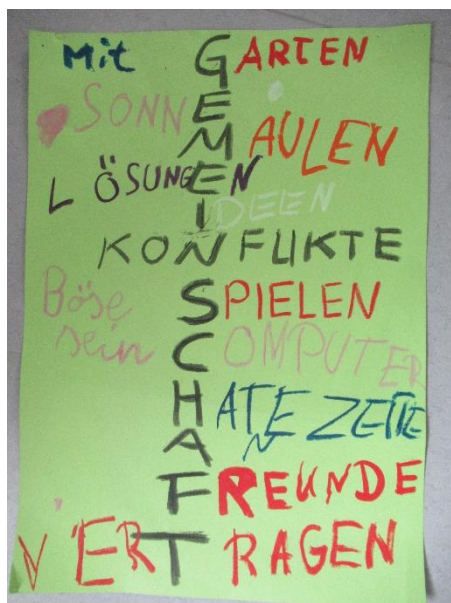 Mit GARTEN
SONNE
MAULEN
LÖSUNGEN
IDEEN
KONFLIKTE
Böse SPIELEN
sein COMPUTER
H
A
FREUNDE
VERTRAGEN